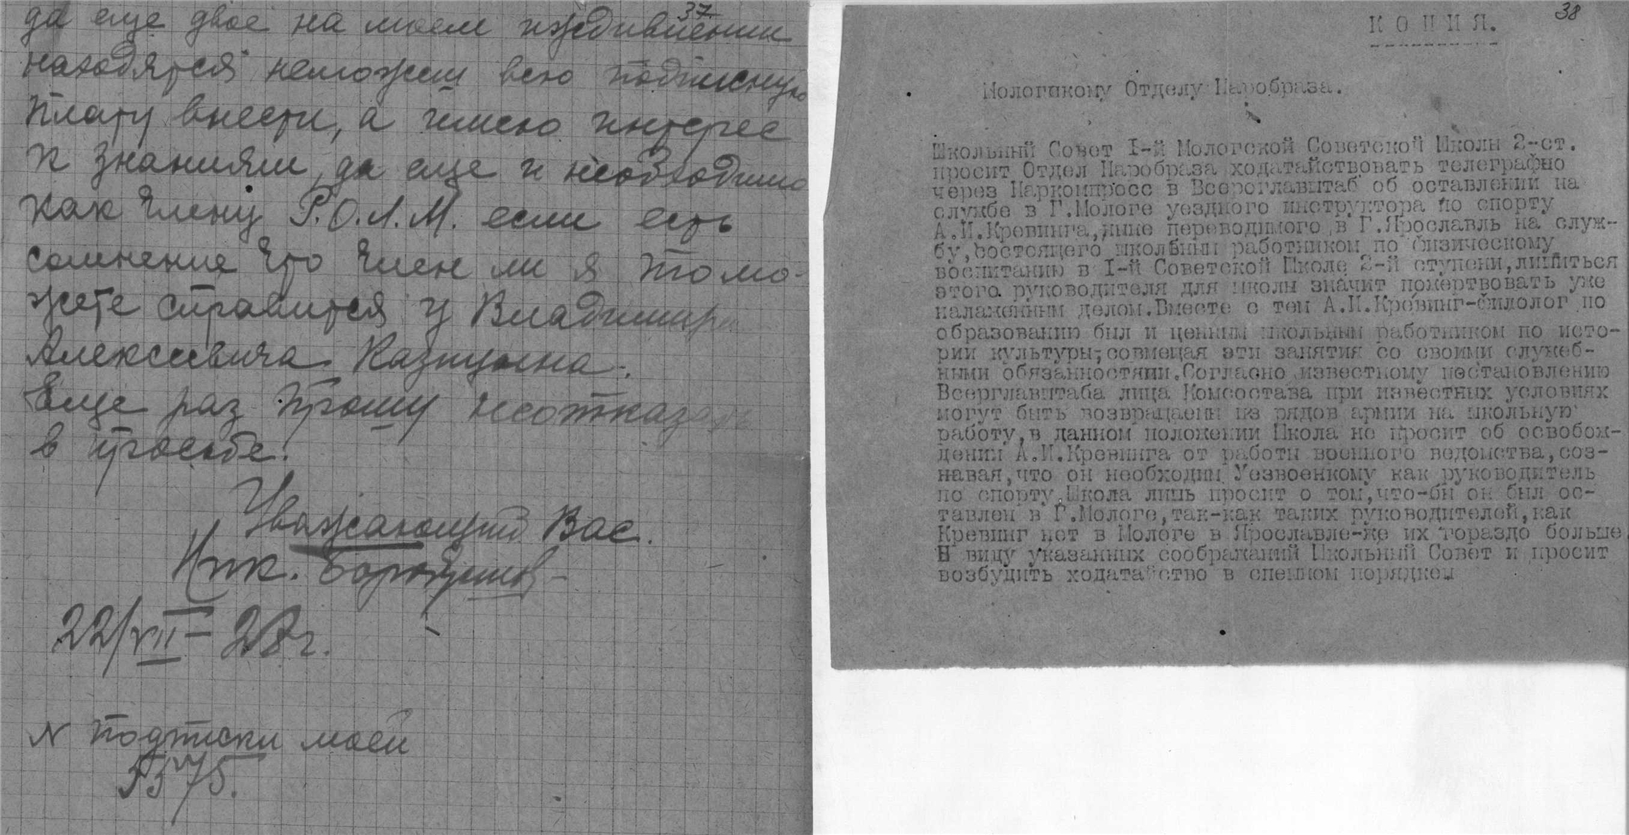 37.
да еще двое на моем иждивении
находятся неможем всю подписную
плату внести, а имею интерес
к знаниям, да еще и необходимо
как члену Р.О.Л.М. если есть
сомнение что член ли я то мо-
жете справится у Владимира
Алексеевича Казицына.
Еще раз прошу неотказать
в просьбе.
Уважающий Вас.
22/VII-28 г.
N подписки моей
5575.
38
КОПИЯ.
Мологикому Отделу Наробраза.
Школьный Совет I-й Мологской Советской Школы 2-ст.
просит Отдел Наробраза ходатайствовать телеграфно
через Наркомпросс в Всероглавштаб об оставлении на
службе в Г.Мологе уездного инструктора по спорту
А.И.Кревинга, ныне переводимого в Г.Ярославль на служ-
бу, состоящего школьным работником по физическому
воспитанию в I-й Советской Школе 2-й ступени, лишиться
этого руководителя для школы значит пожертвовать уже
налаженным делом. Вместе с тем А.И.Кревинг-филолог по
образованию был и ценным школьным работником по исто-
рии культуры, совмещая эти занятия со своими служеб-
ными обязанностями. Согласно известному постановлению
Всерглавштаба лица Комсостава при известных условиях
могут быть возвращаемы из рядов армии на школьную
работу, в данном положении Школа не просит об освобож-
дении А.И.Кревинга от работы военного ведомства, соз-
навая, что он необходим Уезвоенкому как руководитель
по спорту. Школа лишь просит о том, что-бы он был ос-
тавлен в Г.Мологе, так-как таких руководителей, как
Кревинг нет в Мологе в Ярославле-же их гораздо больше.
В виду указанных соображаний Школьный Совет и просит
возбудить ходатайство в спешном порядкем